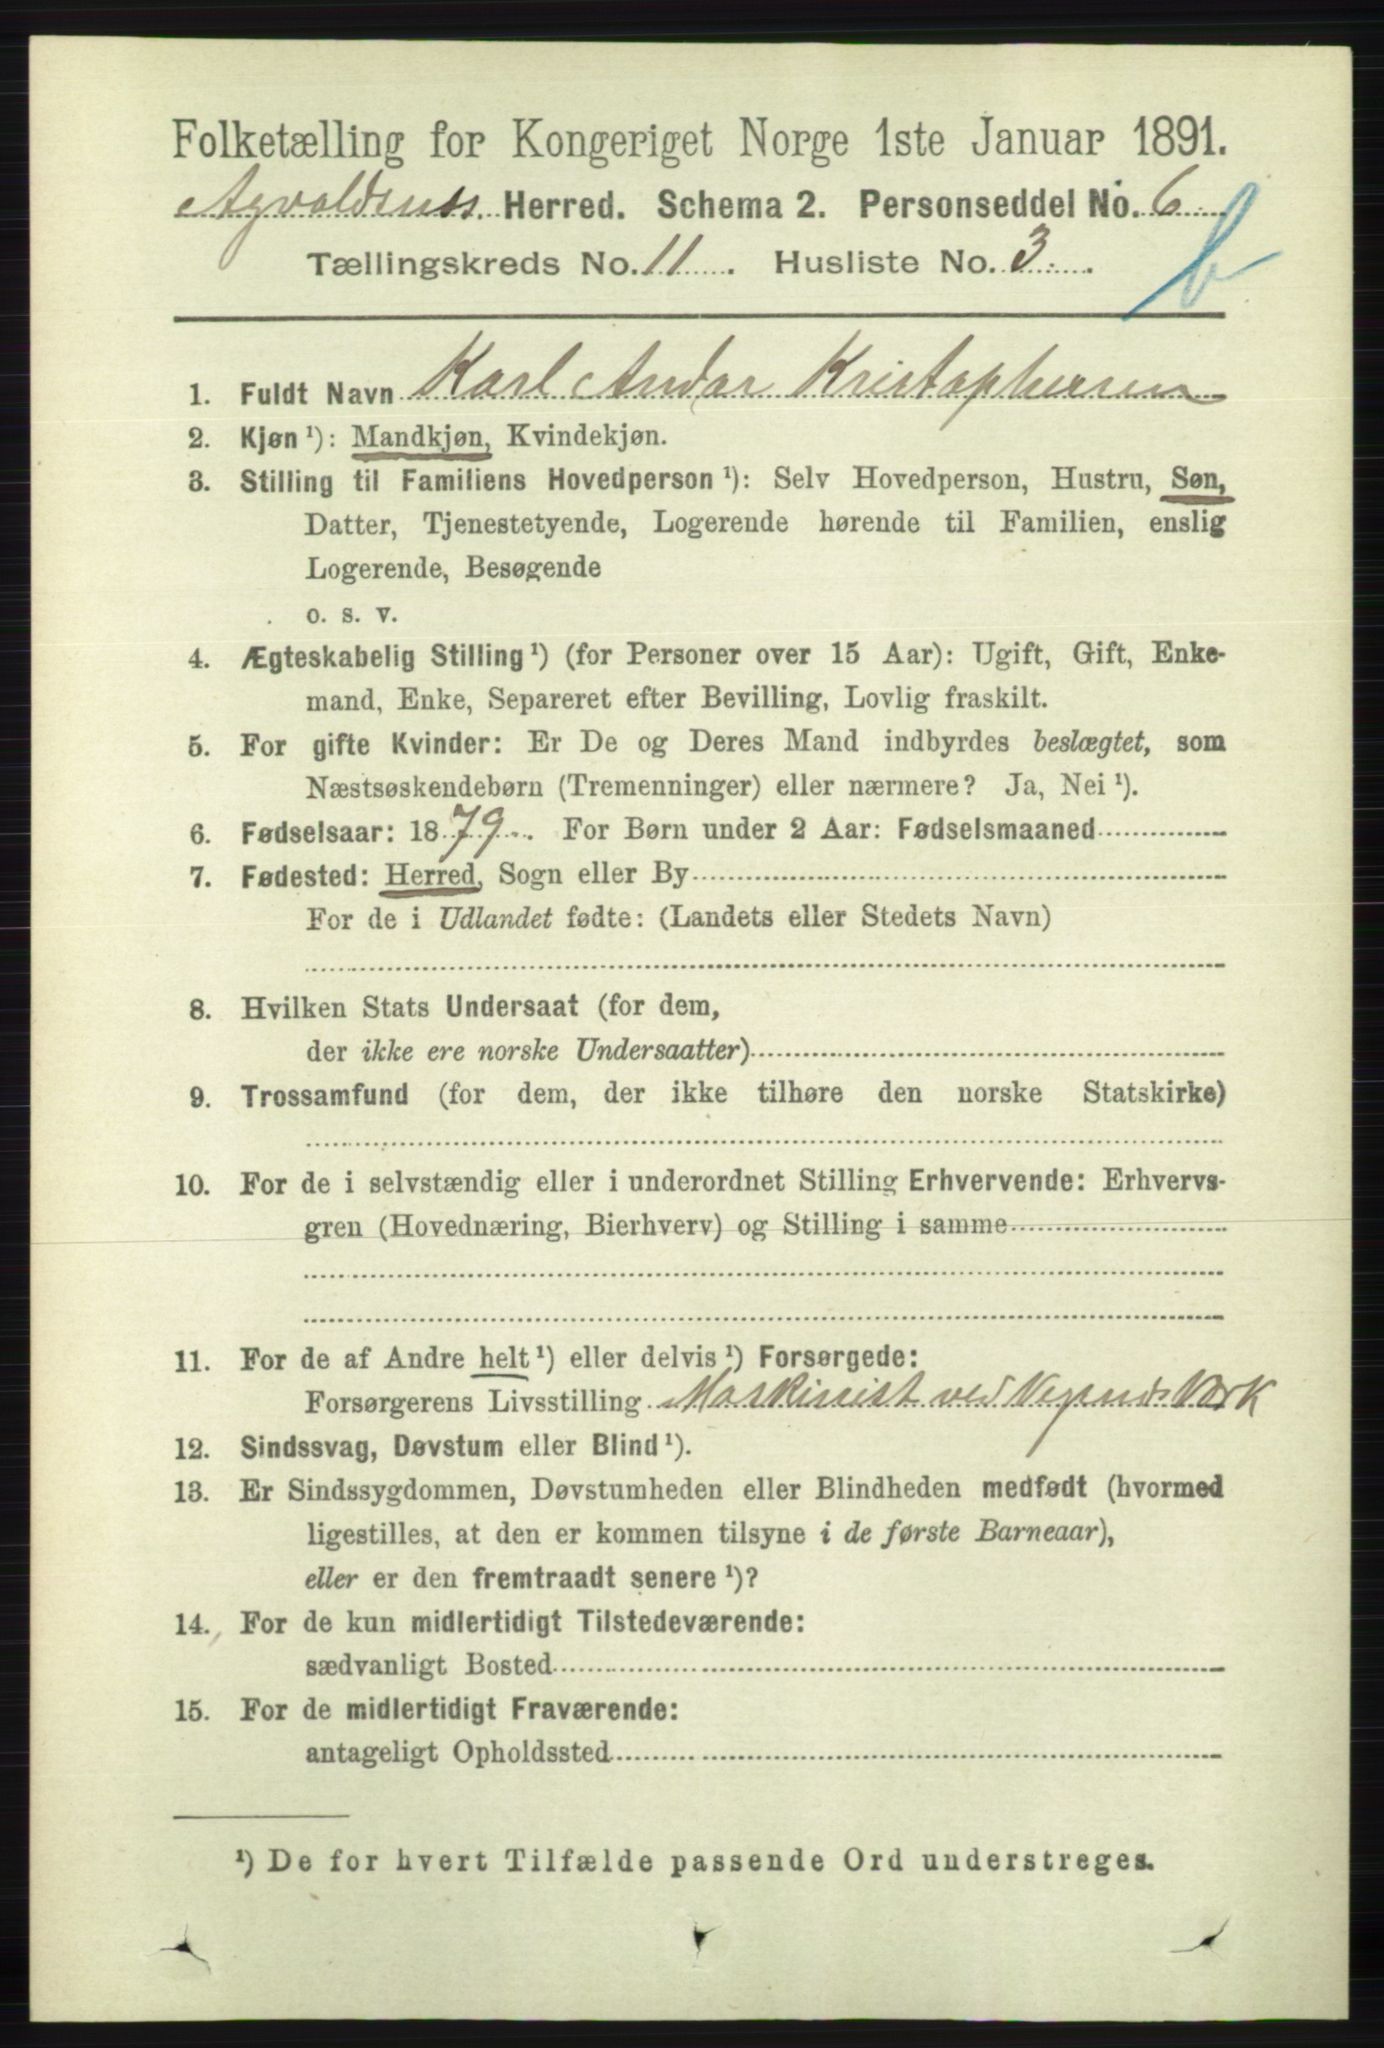 Folketælling for Kongeriget Norge 1ste Januar 1891.
Agvaldsnes Herred. Schema 2. Personseddel No. 6
Tællingskreds No. 11. Husliste No. 3.
b
1. Fuldt Navn Karl Andor Kristophersen
2. Kjøn ¹): Mandkjøn, Kvindekjøn.
3. Stilling til Familiens Hovedperson ¹): Selv Hovedperson, Hustru, Søn,
Datter, Tjenestetyende, Logerende hørende til Familien, enslig
Logerende, Besøgende
o. s. v.
4. Ægteskabelig Stilling ¹) (for Personer over 15 Aar): Ugift, Gift, Enke-
mand, Enke, Separeret efter Bevilling, Lovlig fraskilt.
5. For gifte Kvinder: Er De og Deres Mand indbyrdes beslægtet, som
Næstsøskendebørn (Tremenninger) eller nærmere? Ja, Nei ¹).
6. Fødselsaar: 1879. For Børn under 2 Aar: Fødselsmaaned
7. Fødested: Herred, Sogn eller By
For de i Udlandet fødte: (Landets eller Stedets Navn)
8. Hvilken Stats Undersaat (for dem,
der ikke ere norske Undersaatter)
9. Trossamfund (for dem, der ikke tilhøre den norske Statskirke)
10. For de i selvstændig eller i underordnet Stilling Erhvervende: Erhvervs-
gren (Hovednæring, Bierhverv) og Stilling i samme
11. For de af Andre helt ¹) eller delvis ¹) Forsørgede:
Forsørgerens Livsstilling Maskinist ved Vigsnes Værk
12. Sindssvag, Døvstum eller Blind ¹).
13. Er Sindssygdommen, Døvstumheden eller Blindheden medfødt (hvormed
ligestilles, at den er kommen tilsyne i de første Barneaar),
eller er den fremtraadt senere ¹)?
14. For de kun midlertidigt Tilstedeværende:
sædvanligt Bosted
15. For de midlertidigt Fraværende:
antageligt Opholdssted
¹) De for hvert Tilfælde passende Ord understreges.